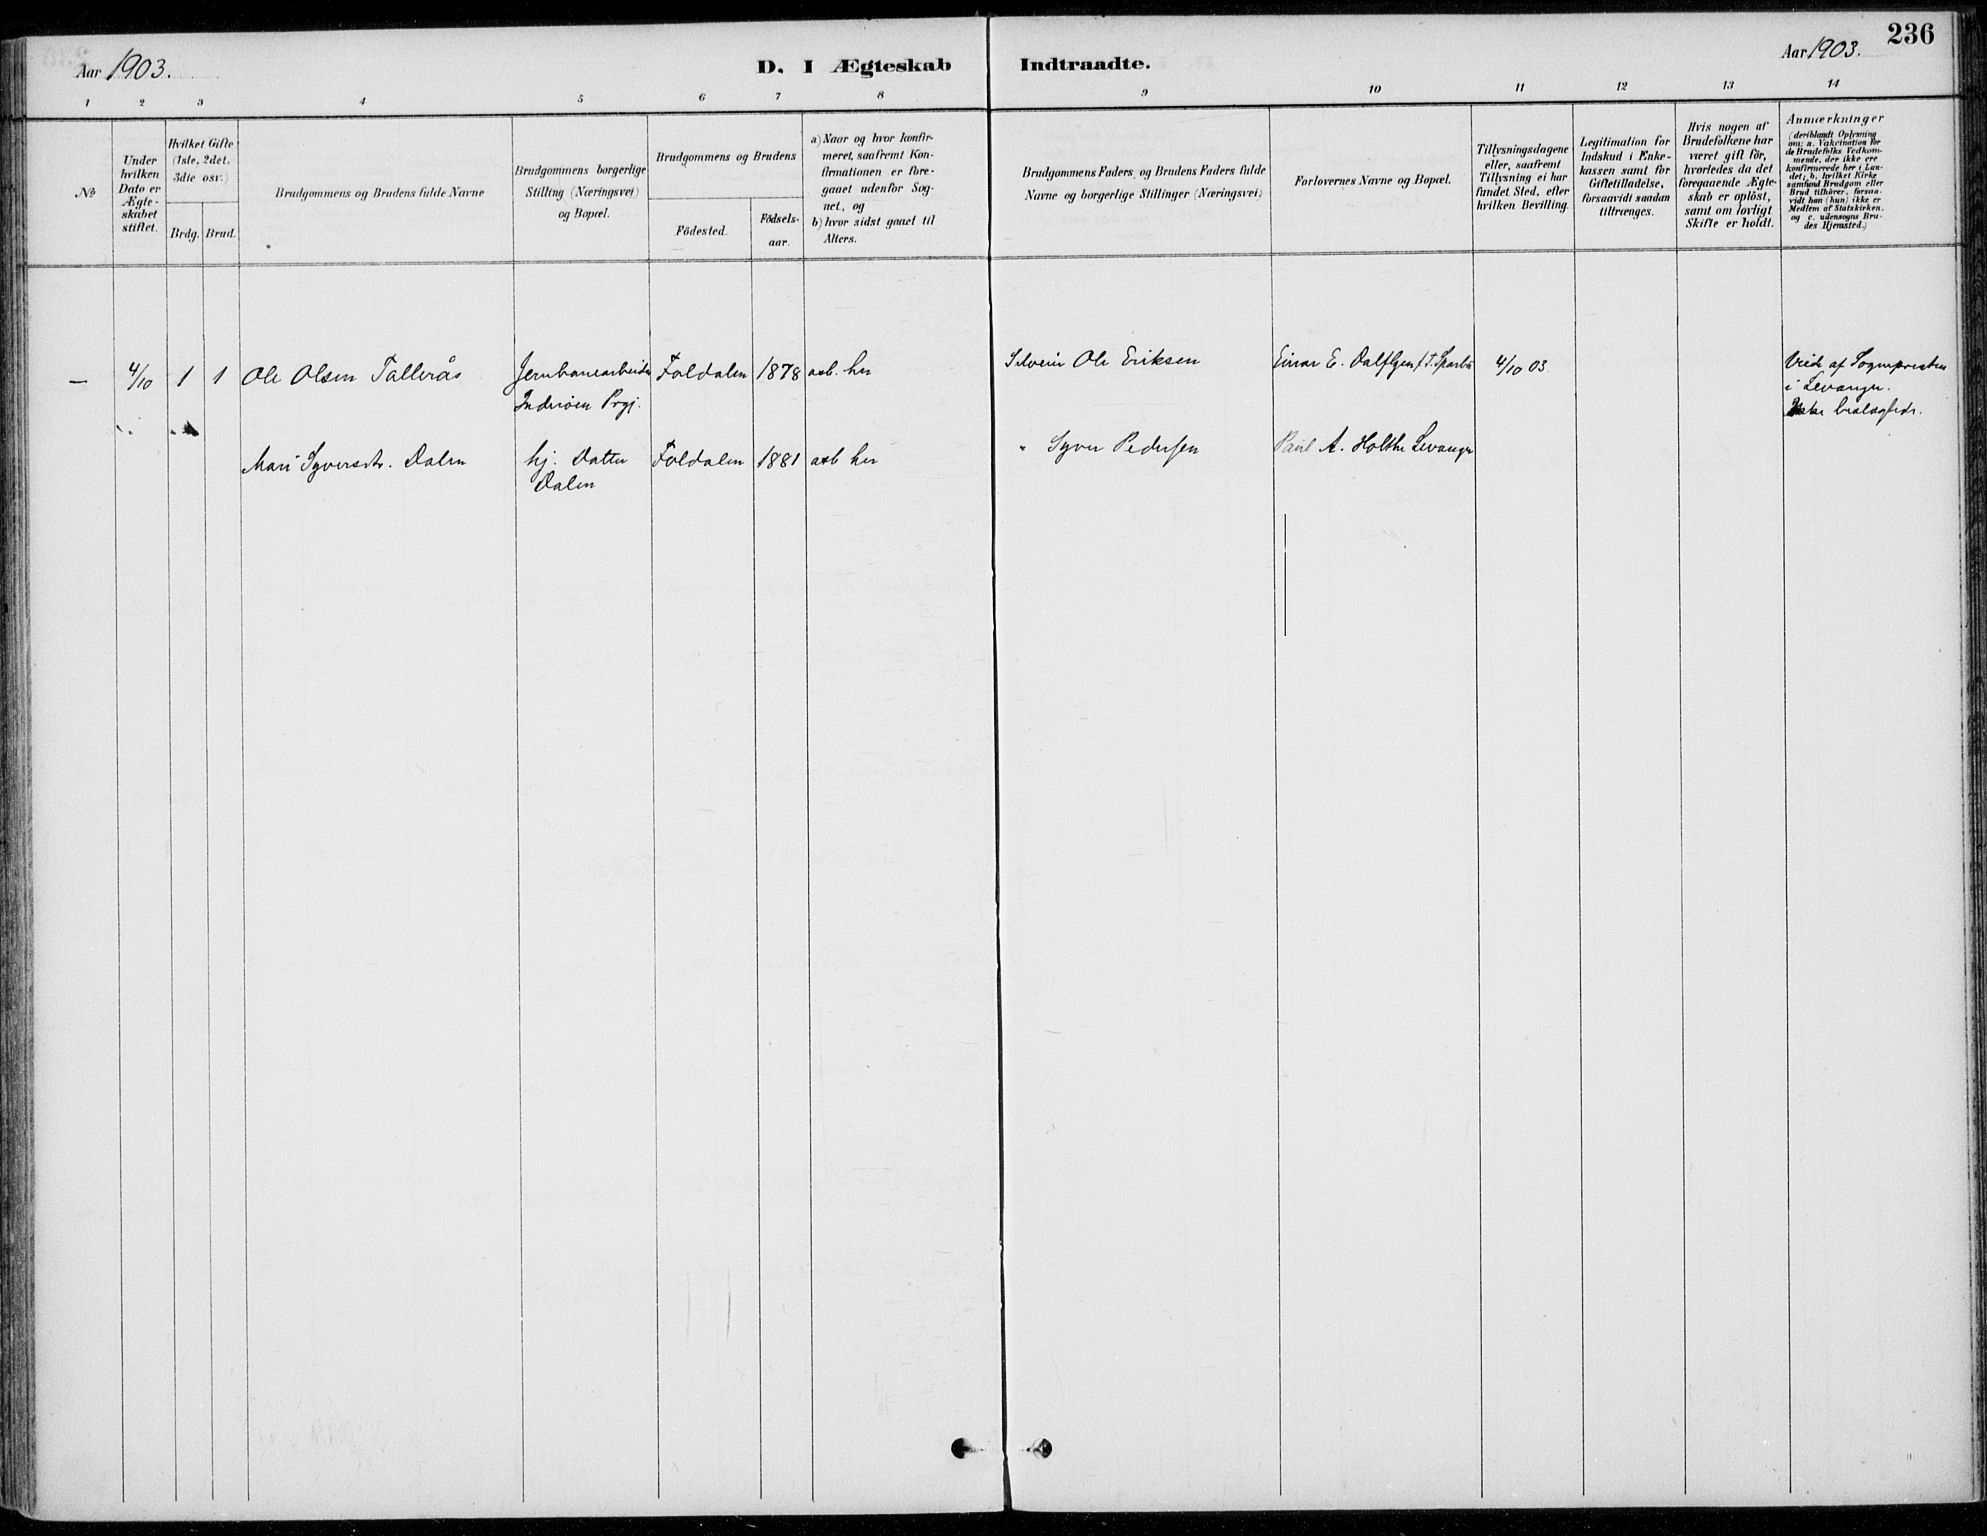 236
Aar 1903.
D. I Ægteskab Indtraadte.
Aar 1903.
1 2 3 4 5 6 7 8 9 10 11 12 13 14
№
Under
hvilken
Dato er
Ægte-
skabet
stiftet.
Hvilket Gifte
(1ste, 2det,
3die osv.)
Brdg. Brud.
Brudgommens og Brudens fulde Navne
Brudgommens borgerlige
Stilling (Næringsvei)
og Bopæl.
Brudgommens og Brudens
Födested.
Födsels-
aar.
a) Naar og hvor konfir-
meret, saafremt Kon-
firmationen er fore-
gaaet udenfor Sog-
net, og
b) hvor sidst gaaet til
Alters.
Brudgommens Faders, og Brudens Faders fulde
Navne og borgerlige Stillinger (Næringsvei)
Forlovernes Navne og Bopæl.
Tillysningsdagene
eller, saafremt
Tillysning ei har
fundet Sted, efter
hvilken Bevilling.
Legitimation for
Indskud i Enke-
kassen samt for
Giftetilladelse,
forsaavidt saadan
tiltrænges.
Hvis nogen af
Brudefolkene har
været gift för,
hvorledes da det
foregaaende Ægte-
skab er oplöst,
samt om lovligt
Skifte er holdt.
Anmærkninger
(deriblandt Oplysning
om: a. Vakcination for
de Brudefolks Vedkom-
mende, der ikke ere
konfirmerede her i Lan-
det; b. hvilket Kirke
samfund Brudgom eller
Brud tilhörer, forsaa-
vidt han (hun) ikke er
Medlem af Statskirken,
og c. udensogns Bru-
des Hjemsted.)
— 4/10 1 1 Ole Olsen Tallerås Jernbanearbeider Foldalen 1878 her Ole Eriksen Einar E. 4/10 03. Viede af Sognepresten
Inderöen Prgj. i Levanger.
Ikke beslægtede.
Mari Syversdtr. Dalen hj. Datter Foldalen 1881 her " Syver Pedersen Paul A. Holthe Levanger
Dalen